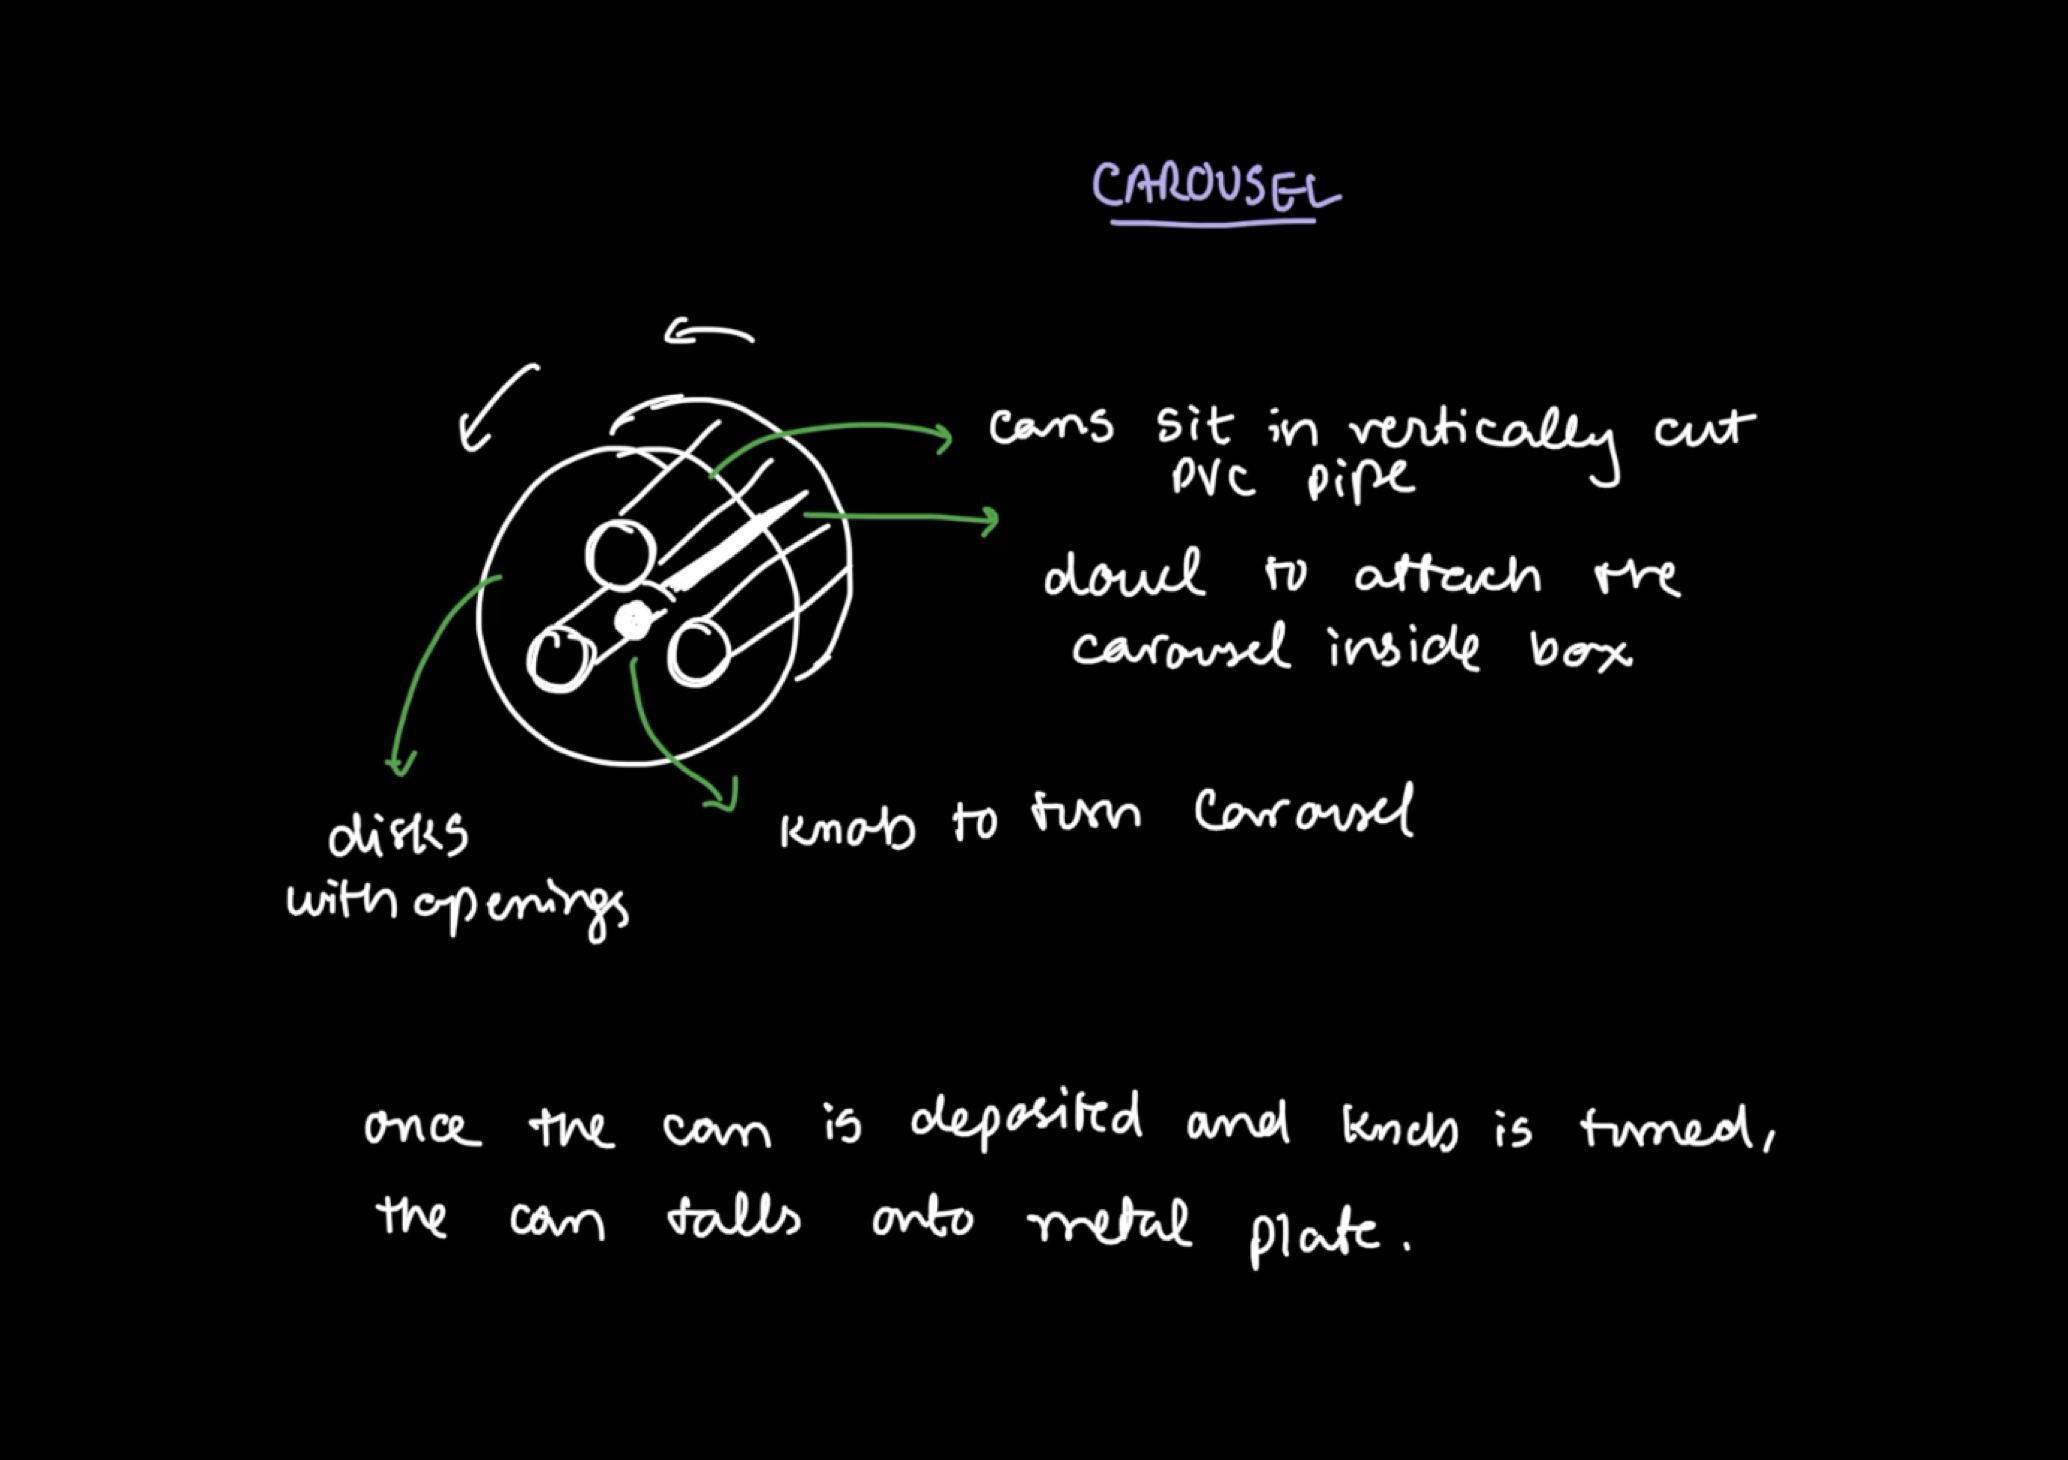 CAROUSEL
cans sit in vertically cut
PVC pipe
dowel to attach the
carousel inside box
knob to turn carousel
disks
with openings
once the can is deposited and knob is turned,
the can falls onto metal plate.